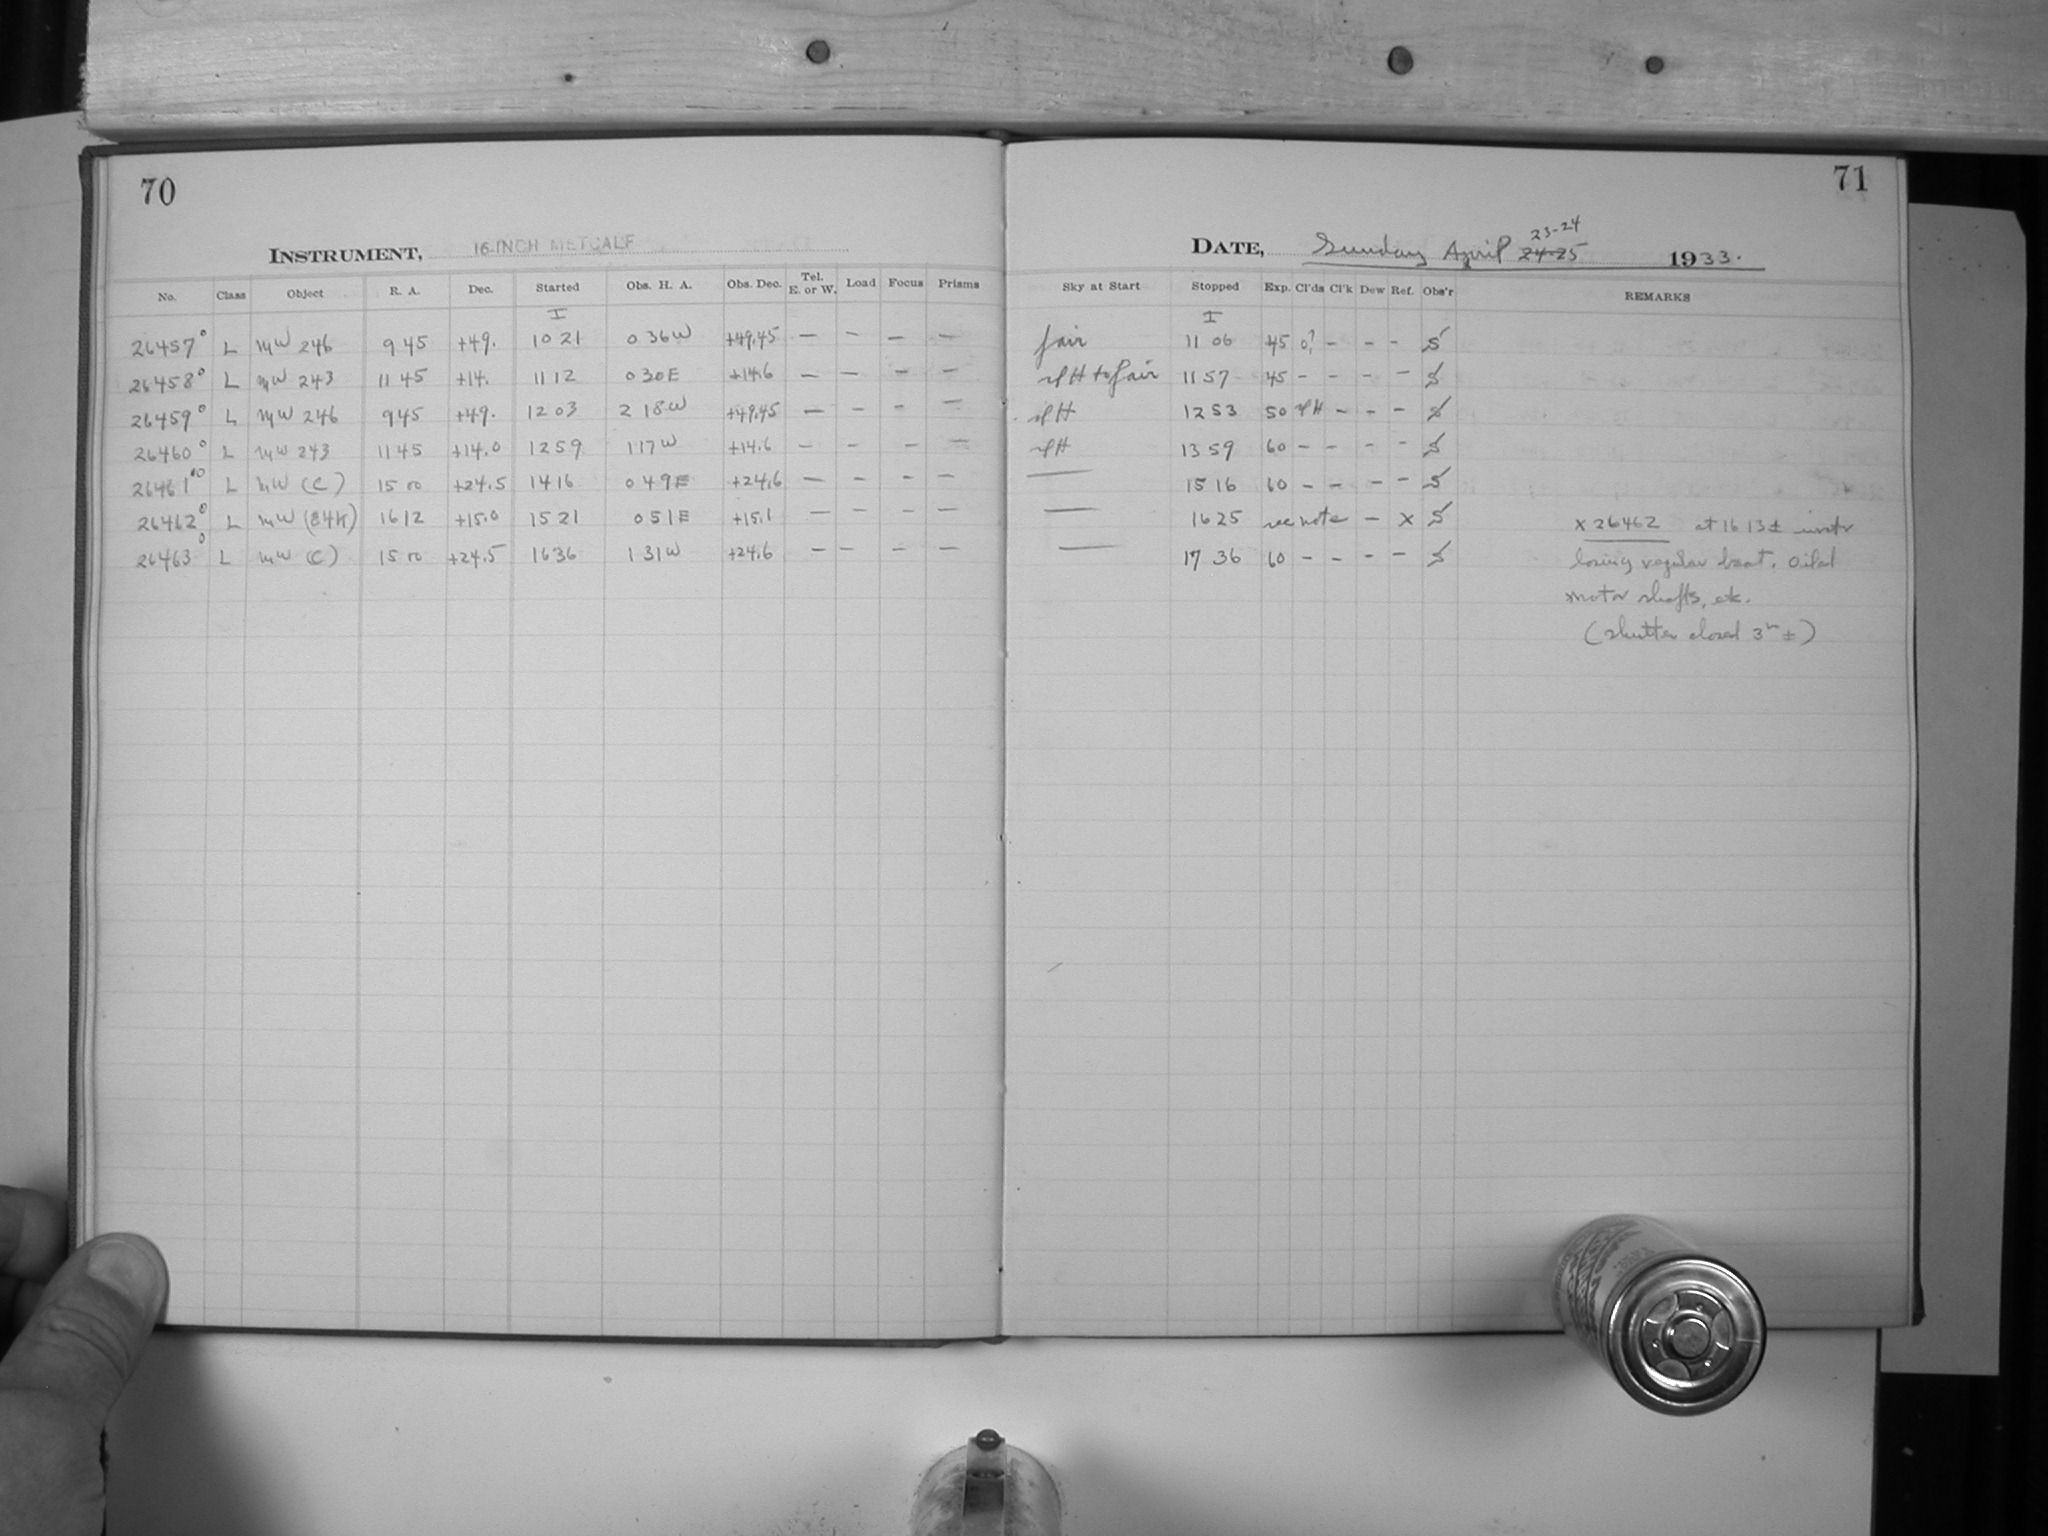 70
INSTRUMENT, 16-INCH METCALF
No. Class Object R. A. Dec. Started Obs. H. A. Obs. Dec. Tel. E. or W. Load Focus Prisms
I
26457° L MW 246 9 45 +49. 10 21 0 36W +49.45 — — — —
26458° L MW 243 11 45 +14. 11 12 0 30E +14.6 — — — —
26459° L MW 246 9 45 +49. 12 03 2 18W +49.45 — — — —
26460° L MW 243 11 45 +14.0 12 59 1 17W +14.6 — — — —
26461 L MW (C) 15 00 +24.5 14 16 0 49E +24.6 — — — —
26462° L MW 16 12 +15.0 15 21 0 51E +15.1 — — — —
26463° L MW (C) 15 00 +24.5 16 36 1 31W +24.6 — — — —
71
DATE, Sunday April 24-25 23-24 1933.
Sky at Start Stopped Exp. Cl'ds Cl'k Dew Ref. Obs'r REMARKS
I
fair 11 06 45 0? - - - S
slH to fair 11 57 45 - - - - S
slH 12 53 50 slH - - - S
slH 13 59 60 - - - - S
— 15 16 60 - - - - S
— 16 25 see note - x S x 26462 at 16 13±
— 17 36 60 - - - - S losing regular beat. Oiled
motor shafts, etc.
(shutter closed 3m ±)